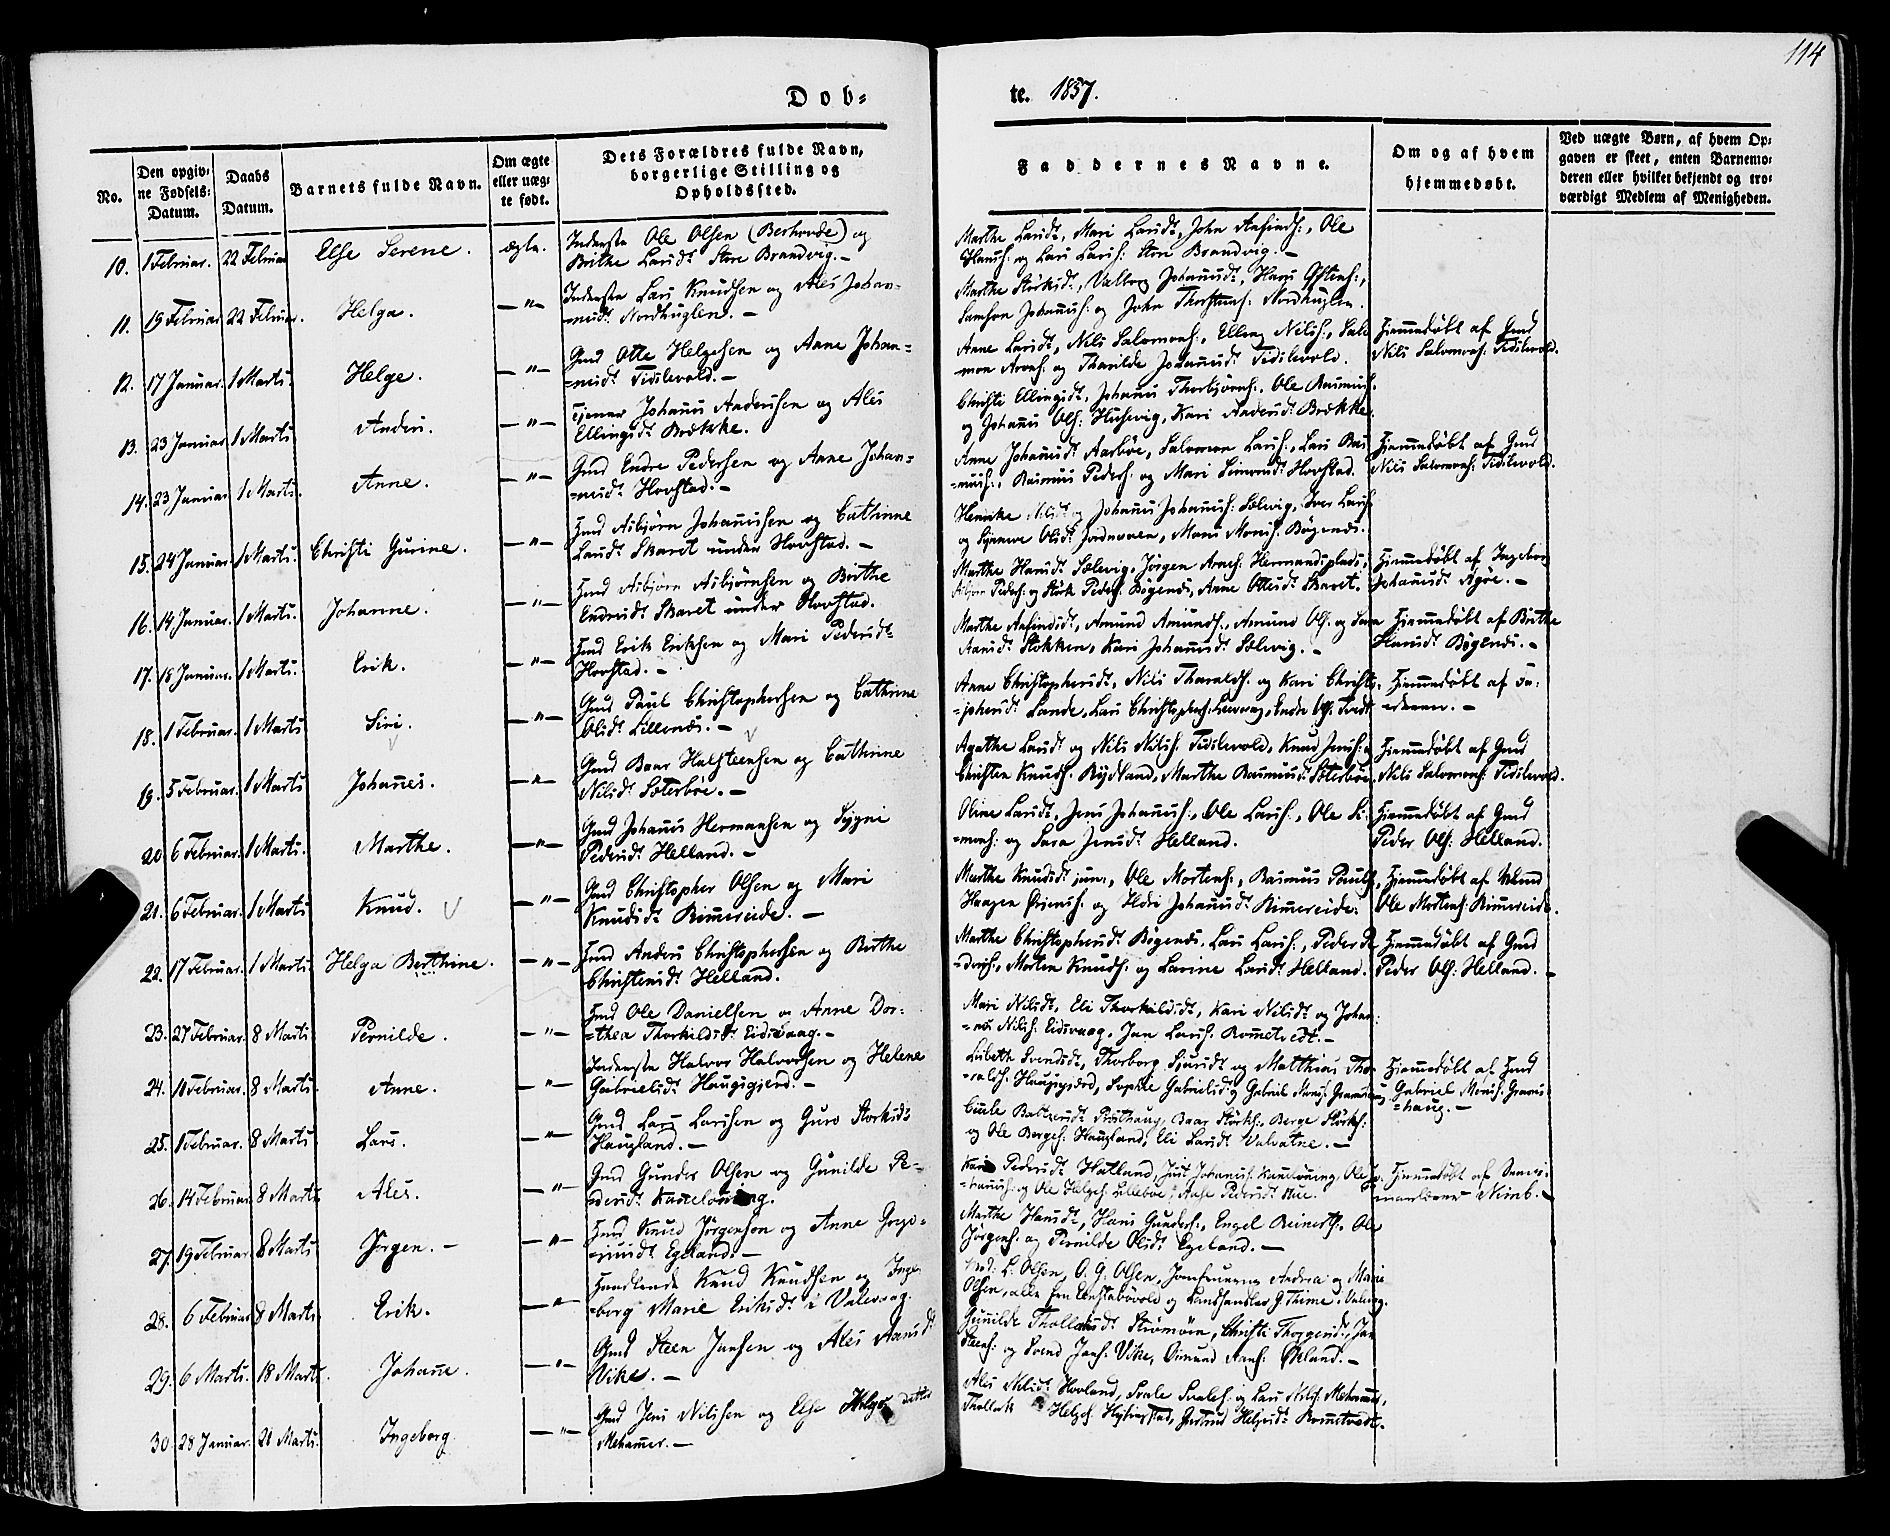 114
Dob-
te. 1857.
No.
Den opgiv-
ne Fødsels-
Datum.
Daabs
Datum.
Barnets fulde Navn.
Om ægte
eller uæg-
te født.
Dets Forældres fulde Navn,
borgerlige Stilling og
Opholdssted.
Faddernes Navne.
Om og af hvem
hjemmedøbt.
Ved uægte Børn, af hvem Op-
gaven er skeet, enten Barnemo-
deren eller hvilket bekjendt og tro-
værdigt Medlem af Menigheden.
10. 1 Februar. 22 Februar Else Serene. ægte. Inderste Ole Olsen (Berhovde) og
Brithe Larsdt. Store Brandvig.
Marthe Larsdt., Mari Larsdt., John Aasinds:, Ole
Hans: og Lars Lars: Store Brandvig.
11. 19 Februar 22 Februar. Helga. —"— Inderste Lars Knudsen og Ales Johan-
nesdt. Nordhuglen.
Marthe Størksdt., Valborg Johannesdt., Hans Østens:,
Samson Johannes: og John Thorstens: Nordhuglen.
12. 17 Januar. 1 Marts. Helge. —"— Gmd Otte Helgesen og Anne Johan-
nesdt. Tislevold.
Anne Larsdt., Nils Salomons:, Elling Nils:, Salo
mon Arons: og Tharilde Johannesdt. Tislevold.
Hjemmedøbt af Gmd
Nils Salomons: Tislevold.
13. 23 Januar. 1 Marts. Anders. —"— Tjener Johannes Andersen og Ales
Ellingsdt. Brække.
Christi Ellingsdt., Johannes Thorbjørns:, Ole Rasmus:
og Johannes Ols: Husevig, Kari Andersdt. Brække.
14. 23 Januar. 1 Marts. Anne. —"— Gmd Endre Pedersen og Anne Johan-
nesdt. Hovstad.
Anne Johannesdt. Aarbøe, Salomon Lars:, Lars Ras
mus:, Rasmus Peders: og Mari Simonsdt. Hovstad.
Hjemmedøbt af Gmd
Nils Salomons: Tislevold.
15. 24 Januar. 1 Marts. Christi Gurine. —"— Hmd Asbjørn Johannessen og Cathrine
Larsdt. Skaret under Hovstad.
Henrike Nilsdt. og Johannes Johannes: Sælevig, Iver Lars:
og Synneve Olsdt. Jordnæven, Mons Mons: Bøgenæs.
16. 14 Januar. 1 Marts. Johanne. —"— Hmd Asbjørn Asbjørnsen og Birthe
Endresdt. Skaret under Hovstad.
Marthe Hansdt. Sælevig, Jørgen Arnes: Hermandsplads,
Asbjørn Peders: og Størk Peders: Bøgenæs, Anne Ottesdt. Skaret.
Hjemmedøbt af Ingebor
Johannesdt. Agøe.
17. 18 Januar. 1 Marts. Erik. —"— Hmd Erik Eriksen og Mari Pedersdt.
Hovstad.
Marthe Aasindsdt., Amund Amunds:, Amund Ols: og Sara
Aansdt. Stokken, Kari Johannesdt. Sælevig.
Hjemmedøbt af Brithe
Hansdt. Bøgenæs.
18. 1 Februar. 1 Marts. Siri. —"— Gmd Paul Christophersen og Cathrine
Olsdt. Lillenæs.
Anne Christophersdt., Nils Tharalds: og Kari Christo-
phersdt. Lande, Lars Christophers: Leervaag, Endre Ols: Tvedt
Hjemmedøbt af Fa-
deren.
19. 5 Februar. 1 Marts. Johannes. —"— Gmd Baar Halsteensen og Cathrine
Nilsdt. Sæterbøe.
Agathe Larsdt. og Nils Nils: Tislevold, Knud Jens: og
Christen Knuds: Rydland, Marthe Rasmusdt. Sæterbøe.
Hjemmedøbt af Gmd
Nils Salomons: Tislevold.
20. 6 Februar. 1 Marts. Marthe. —"— Gmd Johannes Hermansen og Sygni
Pedersdt. Helland.
Oline Larsdt., Jens Johannes:, Ole Lars:, Ole Si-
mons: og Sara Jensdt. Helland.
Hjemmedøbt af Gmd
Peder Ols: Helland.
21. 6 Februar. 1 Marts. Knud. —"— Gmd Christopher Olsen og Mari
Knudsdt. Rimereide.
Marthe Knudsdt. jun., Ole Mortens:, Rasmus Pauls:,
Haagen Øriens: og Ildri Johannesdt. Rimereide.
Hjemmedøbt af
Ole Mortens: Rimereide.
22. 17 Februar. 1 Marts. Helga Berthine. —"— Hmd Anders Christophersen og Birthe
Christensdt. Helland.
Marthe Christophersdt. Bøgenæs, Lars Lars:, Peder Pe-
ders:, Morten Knuds: og Larine Larsdt. Helland.
Hjemmedøbt af Gmd
Peder Ols: Helland.
23. 27 Februar. 8 Marts. Pernilde. —"— Hmd Ole Danielsen og Anne Dor-
thea Thorkildsdt. Eidsvaag.
Mari Nilsdt., Eli Thorkildsdt., Kari Nilsdt. og Johan-
nes Nils: Eidsvaag, Jan Lars: Rometvedt.
24. 11 Februar. 8 Marts. Anne. —"— Inderste Halvor Halvorsen og Helene
Gabrielsdt. Haugsgjerd.
Lisbeth Svendsdt., Thorborg Sjursdt. og Matthias Tho-
ralds: Haugsgjerd, Sophie Gabrielsdt. og Gabriel Mons: Gravnshaug
Hjemmedøbt af Hmd
Gabriel Mons: Gravns-
haug.
25. 1 Februar. 8 Marts. Lars. —"— Gmd Lars Larsen og Guro Størksdt.
Haugland.
Baltzersdt. Prosthaug, Baar Størks:, Berge Størks:
og Ole Berges: Haugland, Eli Larsdt. Valvatne.
26. 14 Februar. 8 Marts. Ales. —"— Gmd Gunder Olsen og Gunilde Pe-
dersdt. Kaneløning.
Kari Pedersdt. Hatland, Just Johannes: Kaneløning, Ole Jo-
hannes: og Ole Helges: Lillebøe, Aase Pedersdt. Mue.
Hjemmedøbt af
Nimb.
27. 19 Februar. 8 Marts. Jørgen. —"— Hmd Knud Jørgensen og Anne Grego-
riusdt. Egeland.
Marthe Hansdt., Hans Gunders:, Engel Reinerts:, Ole
Jørgens: og Pernilde Olsdt. Egeland.
28. 6 Februar 8 Marts. Erik. —"— Handlende Knud Knudsen og Inge-
borg Marie Eriksdt. i Valevaag.
Mad: L. Olsen, O. G. Olsen, Jomfruerne Andrea og Marie
Olsen, alle fra og Landhandler G. Thime, Valevag.
29. 6 Marts. 18 Marts. Johanne. —"— Gmd Steen Jansen og Ales Aansdt.
Vike.
Gunilde Thollevsdt. Strømøen, Christi Thorgersdt., Jan
Steens: og Svend Jans: Vike, Osmund Aans: Økland.
30. 28 Januar. 21 Marts. Ingeborg. —"— Gmd Jens Nilssen og Else Helgesdatter
Mehamer.
Ales Nilsdt. Hovland, Svale Svales: og Lars Nils: Mehamer,
Thollak Helges: Hystingstad, Gertrud Helgesdt. Rometvedt.